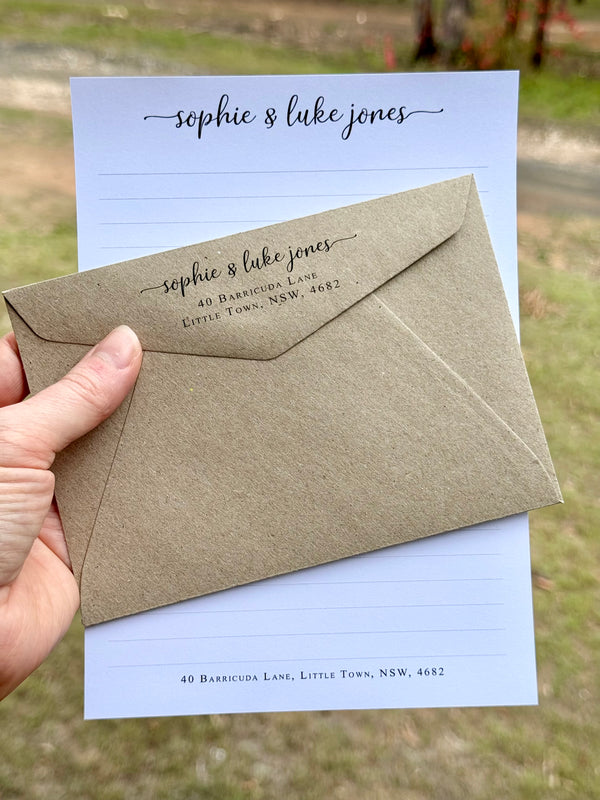 sophie & luke jones
sophie & luke jones
40 Barricuda Lane
Little Town, NSW, 4682
40 Barricuda Lane, Little Town, NSW, 4682